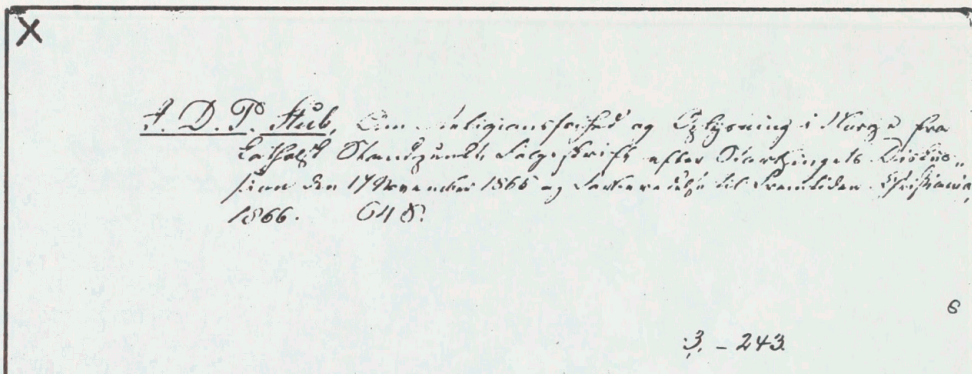 X
J. D. P. Stub, Om Religionsfrihed og Oplysning i Norge fra
katholsk Standpunkt. Følgeskrift efter Storthingets Discus-
sion den 17 November 1865 og til Fremtiden. Christiania,
1866. 64 S.
6
3. - 243